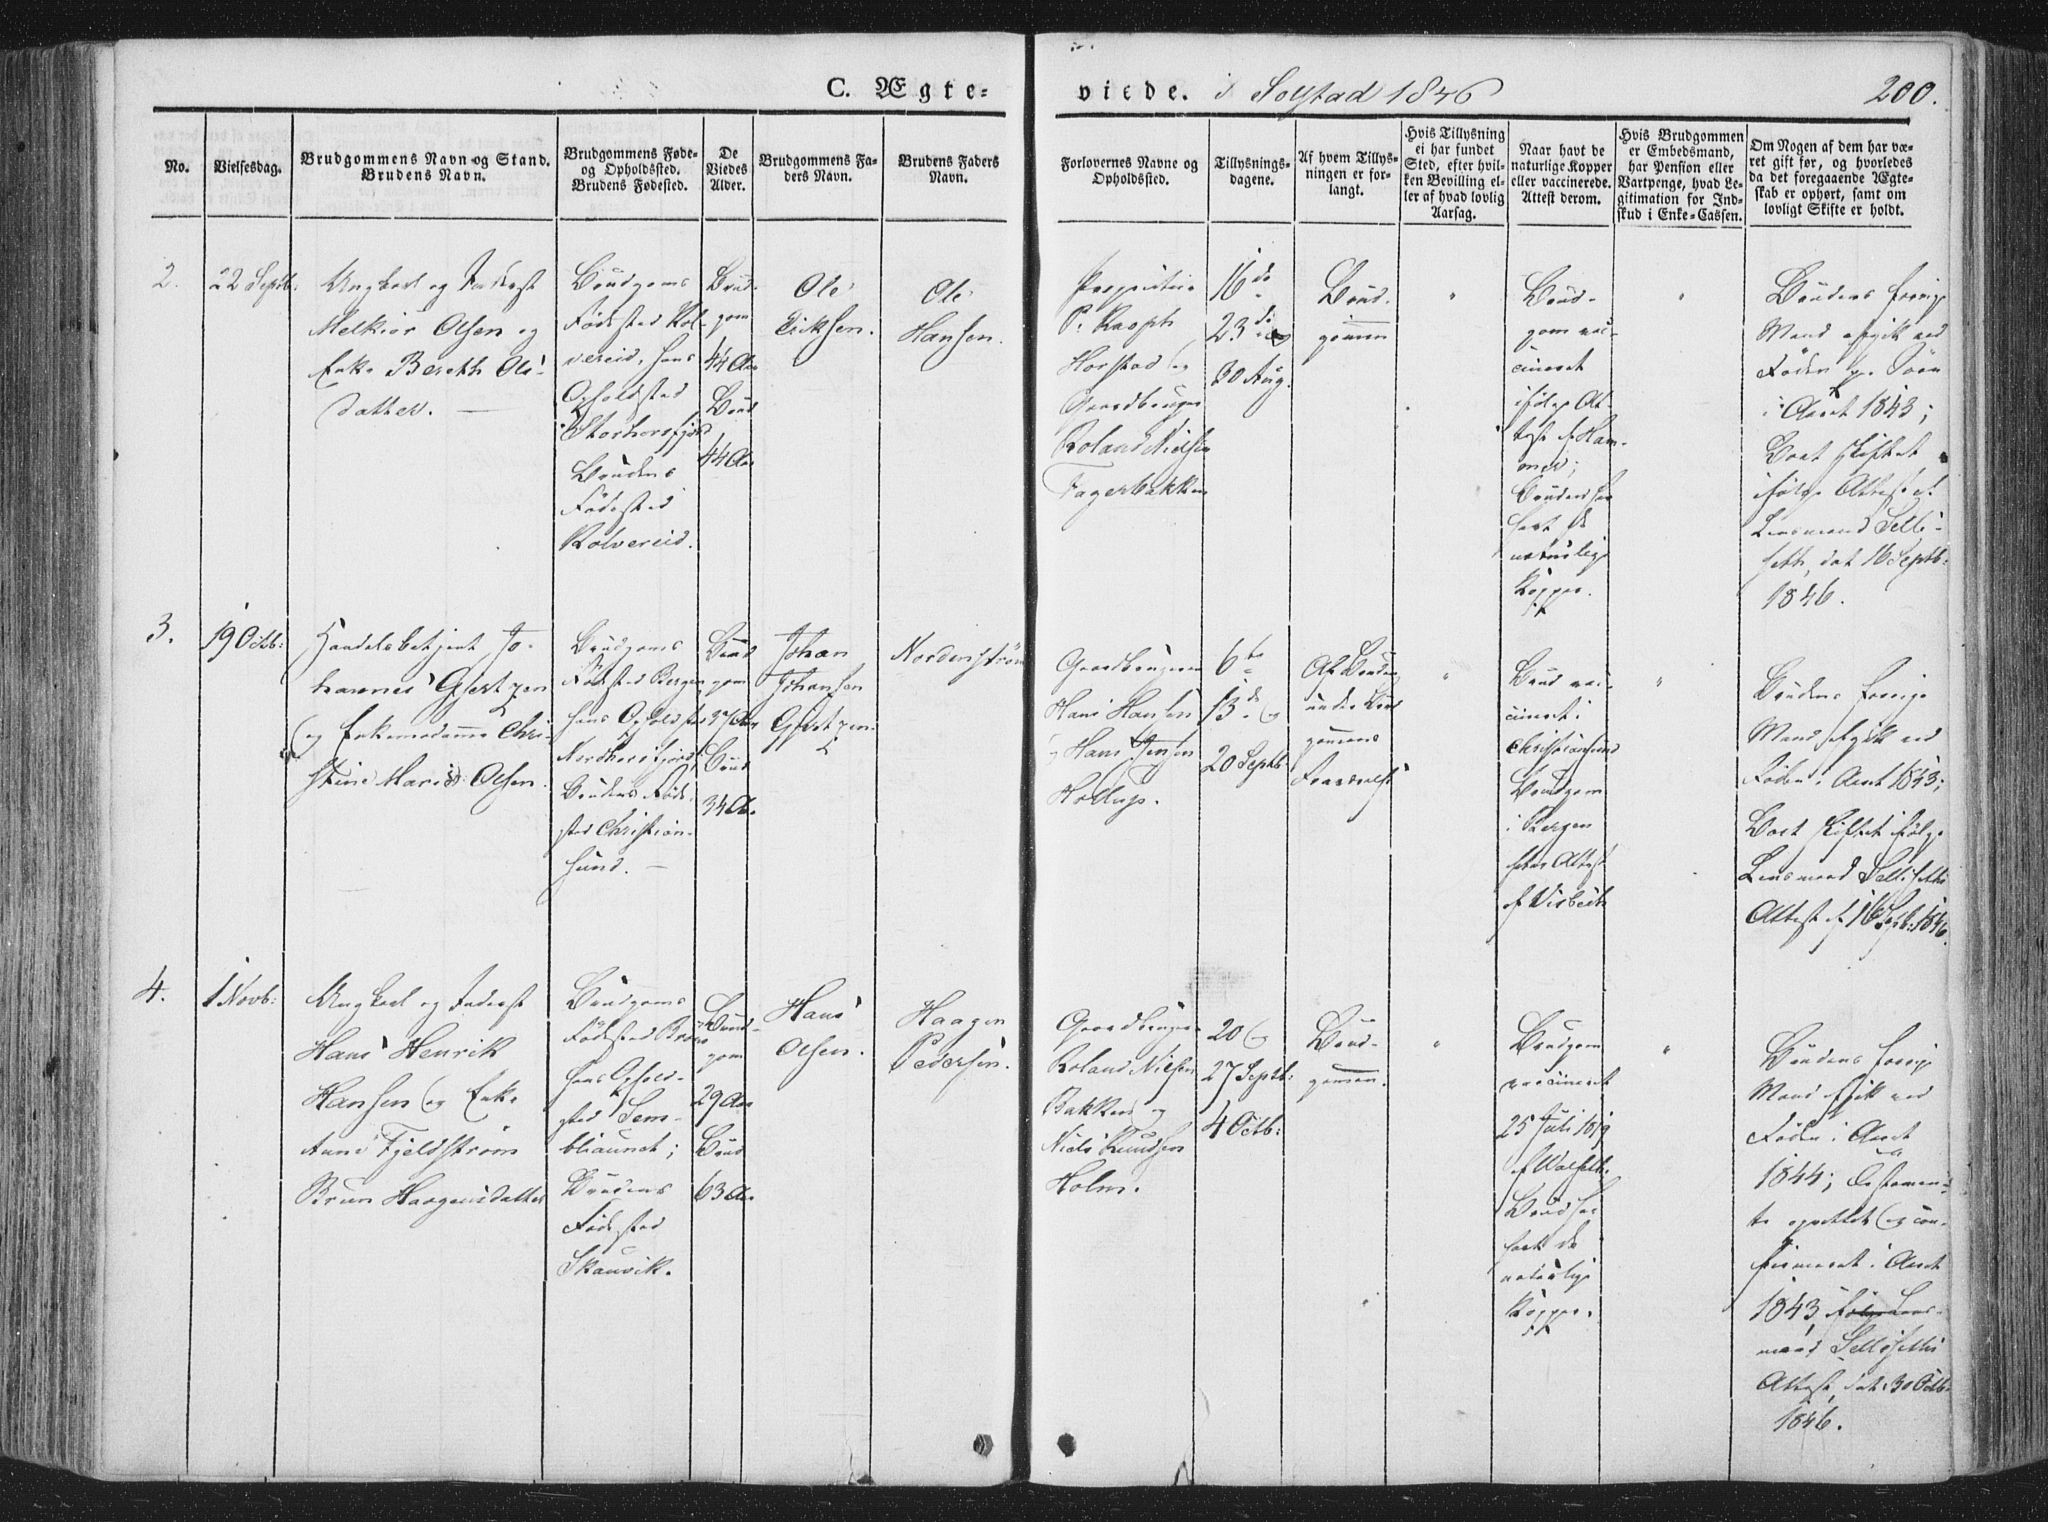 C. Ægte-
viede. i Solstad 1846
200.
No.
Vielsesdag.
Brudgommens Navn og Stand.
Brudens Navn.
Brudgommens Føde-
og Opholdssted.
Brudens Fødested.
De
Viedes
Alder.
Brudgommens Fa-
ders Navn.
Brudens Faders
Navn.
Forlovernes Navne og
Opholdssted.
Tillysnings-
dagene.
Af hvem Tillys-
ningen er for-
langt.
Hvis Tillysning
ei har fundet
Sted, efter hvil-
ken Bevilling el-
ler af hvad lovlig
Aarsag.
Naar havt de
naturlige Kopper
eller vaccinerede.
Attest derom.
Hvis Brudgommen
er Embedsmand,
har Pension eller
Vartpenge, hvad Le-
gitimation for Ind-
skud i Enke-Cassen.
Om Nogen af dem har væ-
ret gift før, og hvorledes
da det foregaaende Ægte-
skab er ophørt, samt om
lovligt Skifte er holdt.
2.
22 Septb:
Ungkarl og Inderst
Melkior Olsen og
Enke Bereth Ole-
datter.
Brudgoms
Fødested Kol-
vereid, hans
Opholdsted
Storhorsfjord
Brudens
Fødested
Kolvereid.
Brud-
gom
44 Aar
Brud
44 Aar
Ole
Eriksen.
Ole
Hansen.
P. Rasph
Horstad og
Gaardbruger
Roland Nielsen
Fagerbakken
16de
23de og
30 Aug.
Brud-
gommen
"
Brud-
gom vac-
cineret
ifølge At-
test af Ham-
mer;
Bruden ha-
havt de
naturlige
Kopper.
"
Brudens forrige
Mand afgik ved
Døden paa Søen
i Aaret 1843;
Boet skiftet
ifølge Attest af
Lensmand Selli-
seth, dat 16 Septb:
1846.
3.
19 Octb:
Handelsbetjent Jo-
hannes Gjertzen
og Enkemadamme Chri-
stine Marie Olsen.
Brudgoms
Fødested Bergen
hans Opholdsted
Nordhorsfjord,
Brudens Føde-
sted Christian-
sund.
Brud
gom
37 Aar
Brud
34 Aar
Johan
Johansen
Gjertzen.
Nordenström
Gaardbrugerne
Hans Hansen
og Hans Jensen
Hollup.
6te
13de og
20 Septb.
Af Bruden
under Brud
gommens
Fraværelse
"
Brud vac-
cineret i
Christiansund
Brudgom
i Bergen
efter Attest
af Wisbech
"
Brudens forrige
Mand afgik ved
Døden i Aaret 1843;
Boet skiftet ifølge
Lensmand Selliseths
Attest af 16 Septb: 1846.
4.
1 Novb:
Ungkarl og Inderst
Hans Henrik
Hansen og Enke
Anne Fjeldstrøm
Brun Haagensdatter
Brudgoms
Fødested
hans Ophold-
sted Sem-
bliaunet;
Brudens
Fødested
Skauvik.
Brud-
gom
29 Aar
Brud
63 Aar
Hans
Olsen.
Haagen
Pedersen.
Gaardbruger
Roland Nielsen
Bakken og
Niels Knudsen
Holm.
20 og
27 Septb:
4 Octb:
Brud-
gommen.
"
Brudgom
vaccineret
25 Juli 1819
af
Brud ha-
havt de
naturlige
Kopper.
"
Brudens forrige
Mand afgik ved
Døden i Aaret
1844; Testamen-
te oprettet og con-
firmeret i Aaret
1843 ifølge Lens-
mand Selliseths
Attest, dat: 30 Octb:
1846.